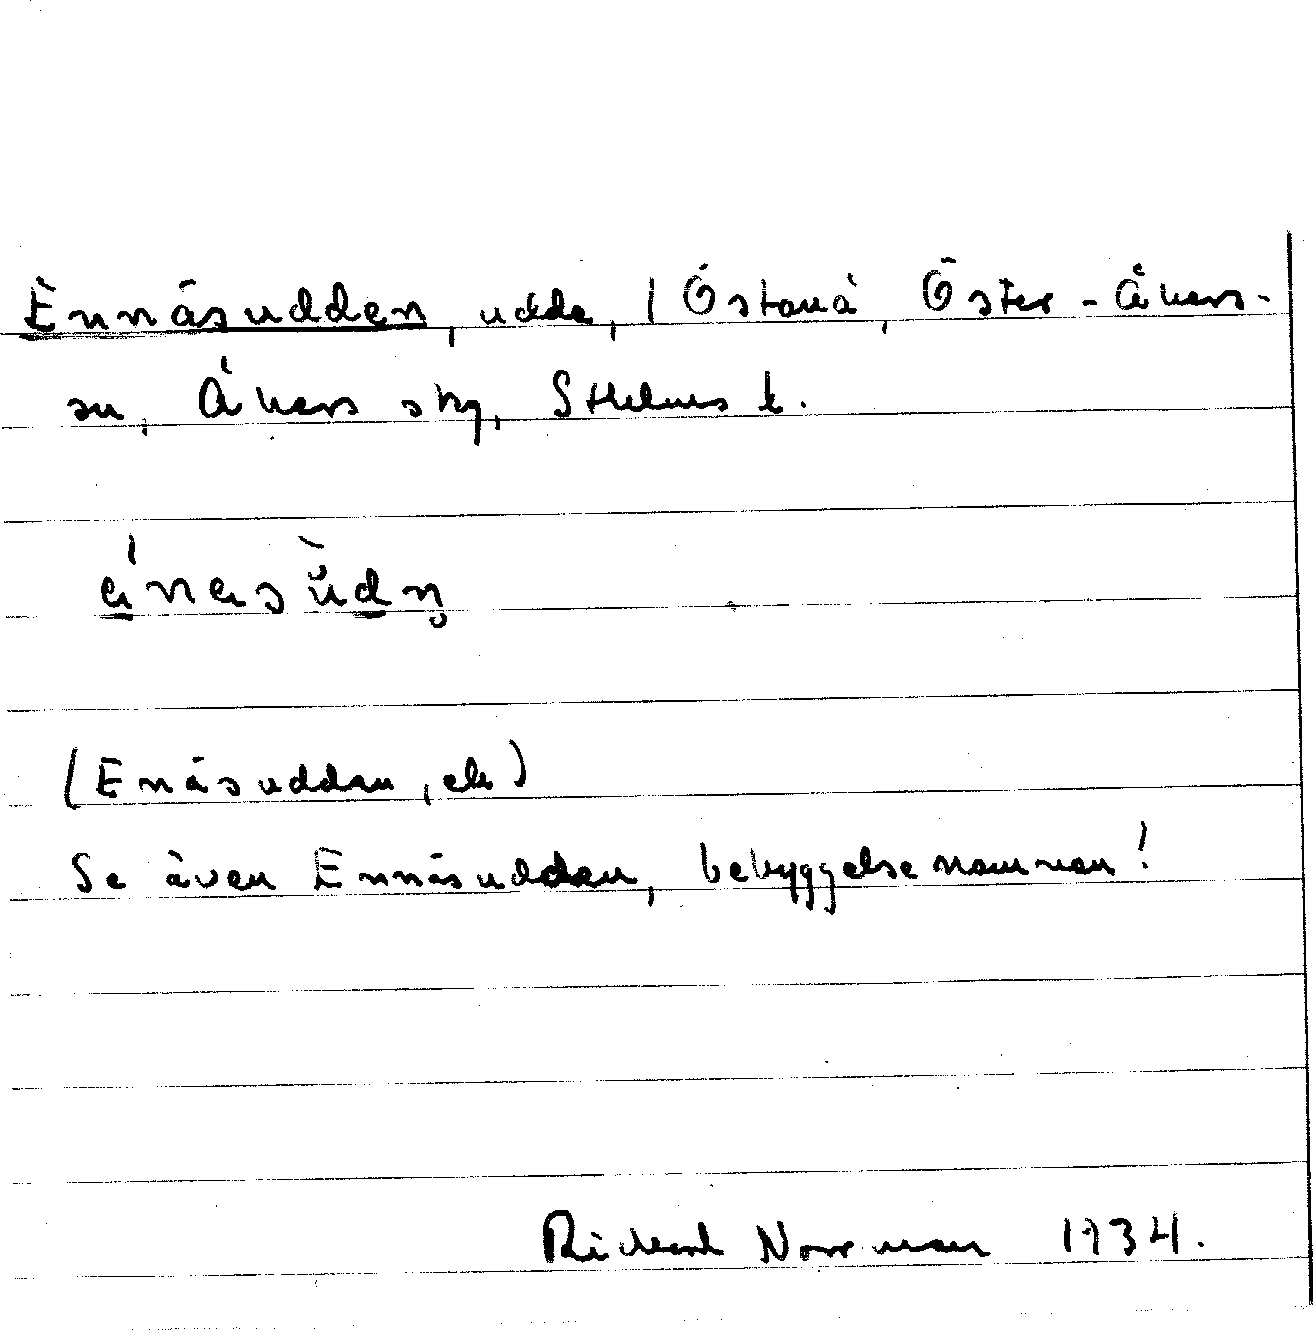 Ennäsudden, udde, 1 Östanå, Öster-Åkers-
sn, Åkers skg, Sthlms l.
(Enäsudden, ek)
Se även Ennäsudden, bebyggelsenamnen!
Richard Norrman 1934.